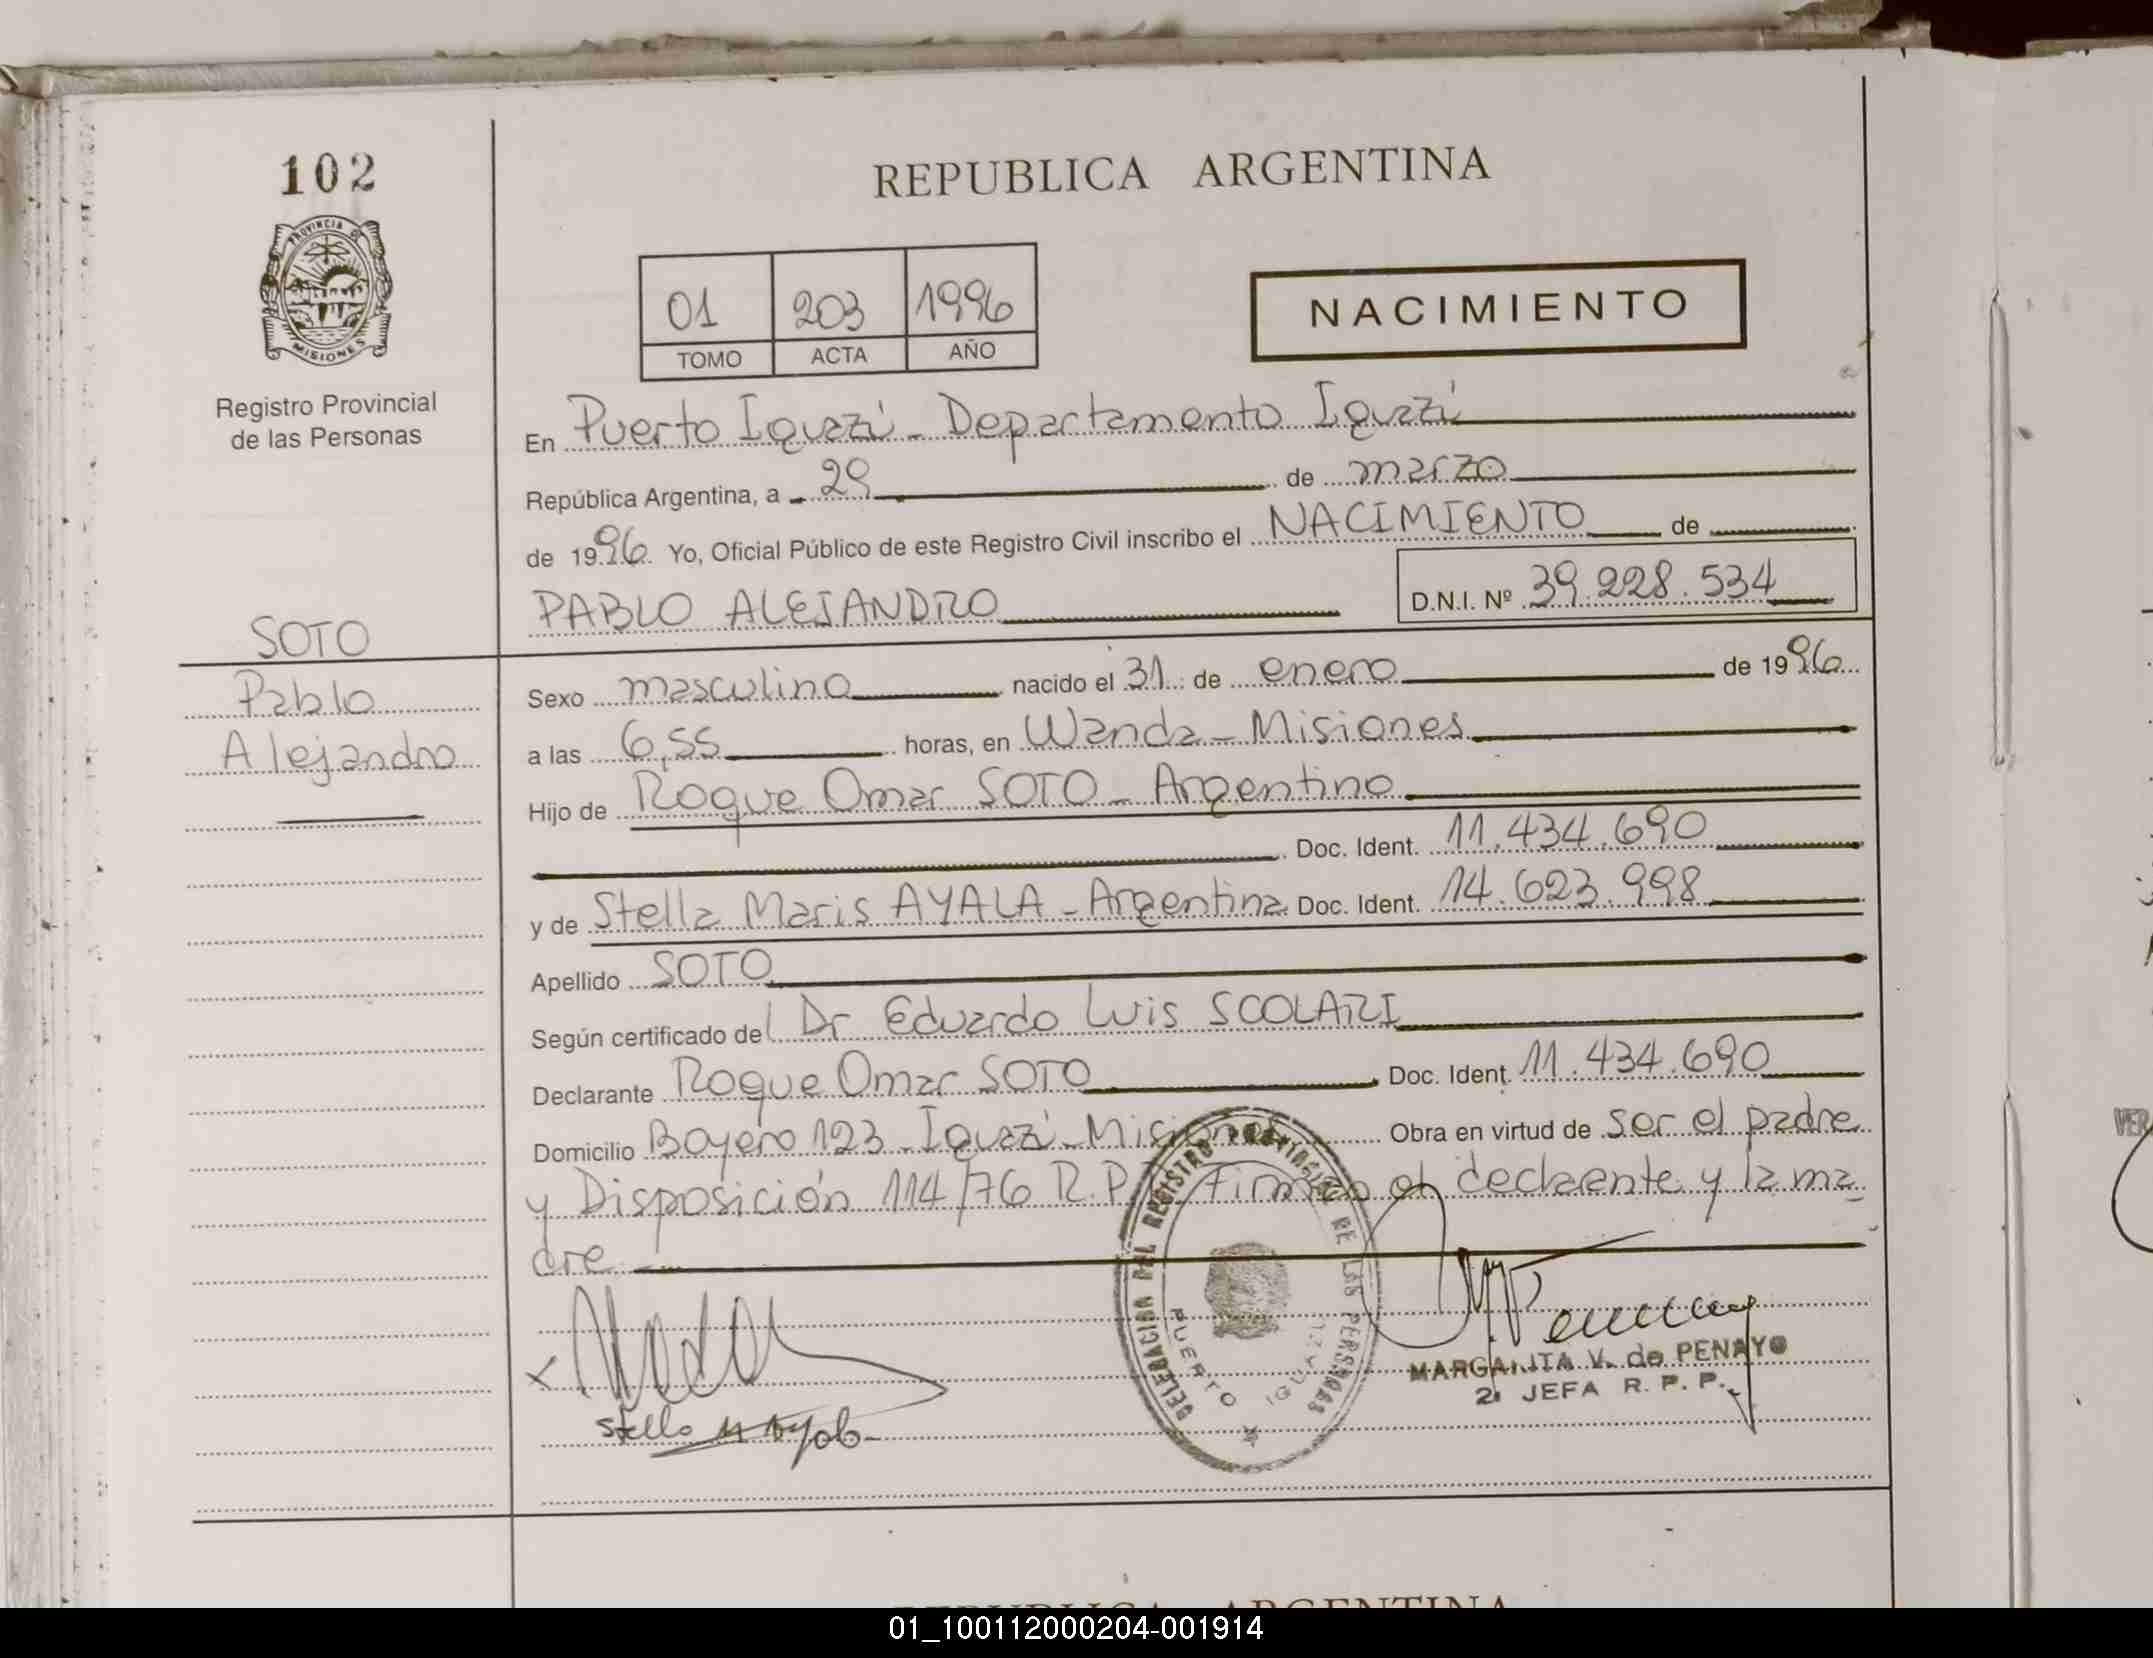 102
PROVINCIA DE
MISIONES
Registro Provincial
de las Personas
REPUBLICA ARGENTINA
01 203 1996
TOMO ACTA AÑO
NACIMIENTO
En Puerto Iguazú - Departamento Iguazú
República Argentina, a 29 de marzo
de 1996 Yo, Oficial Público de este Registro Civil inscribo el NACIMIENTO de
PABLO ALEJANDRO D.N.I. Nº 39.228.534
SOTO
Pablo
Alejandro
Sexo masculino nacido el 31 de enero de 1996
a las 6,55 horas, en Wanda - Misiones
Hijo de Roque Omar SOTO - Argentino
Doc. Ident. 11.434.690
y de Stella Maris AYALA - Argentina Doc. Ident. 14.623.998
Apellido SOTO
Según certificado del Dr Eduardo Luis SCOLARI
Declarante Roque Omar SOTO Doc. Ident. 11.434.690
Domicilio Boyero 123 - Iguazú - Misiones Obra en virtud de ser el padre
y Disposición 114/76 R.P. Firman el declaente y la ma
dre
DELEGACION DEL REGISTRO PROVINCIAL DE LAS PERSONAS
PUERTO IGUAZU
MARGARITA V. de PENAYO
2ª JEFA R. P. P.
Stella M Ayala
REPUBLICA ARGENTINA
VER
01_100112000204-001914